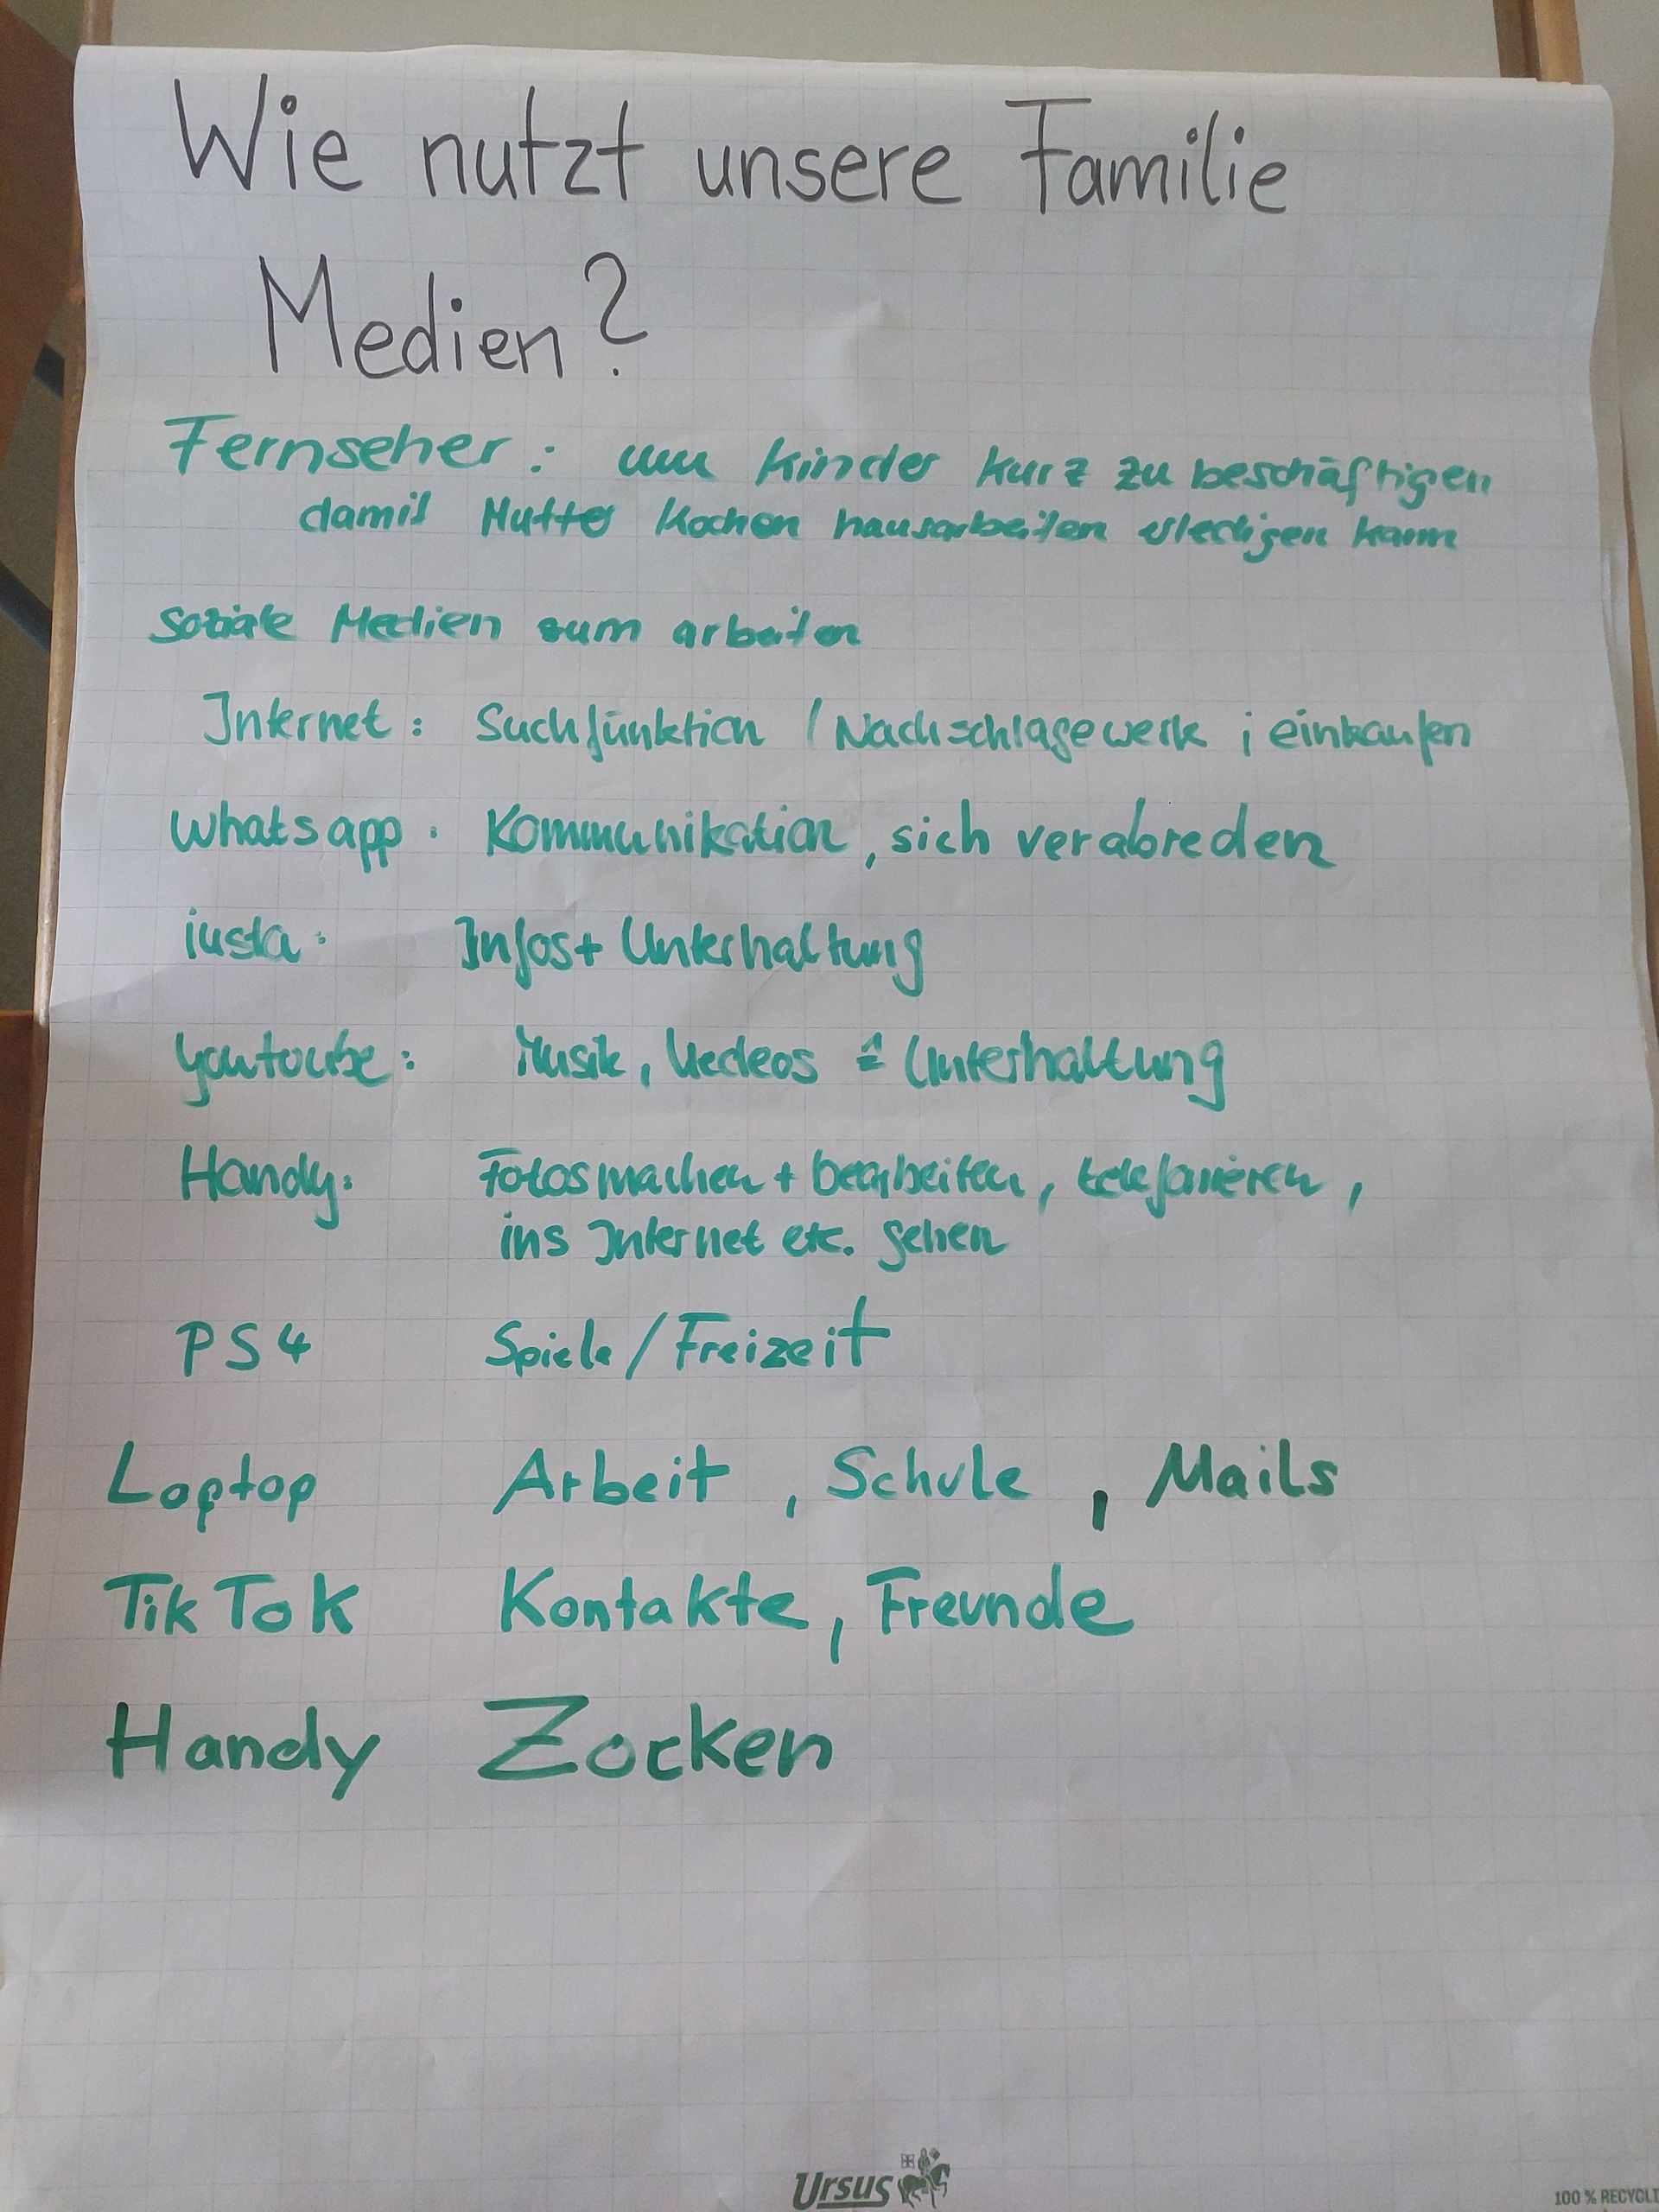 Wie nutzt unsere Familie
Medien?
Fernseher: um Kinder kurz zu beschäftigen
damit Mutter Kochen hausarbeiten erledigen kann
soziale Medien zum arbeiten
Internet: Suchfunktion / Nachschlagewerk ; einkaufen
Whatsapp: Kommunikation, sich verabreden
insta: Infos + Unterhaltung
youtoube: Musik, Vedeos ≙ Unterhaltung
Handy: Fotos machen + bearbeiten, telefonieren,
ins Internet etc. gehen
PS4 Spiele/Freizeit
Laptop Arbeit, Schule, Mails
TikTok Kontakte, Freunde
Handy Zocken
Ursus
100 % RECYCL